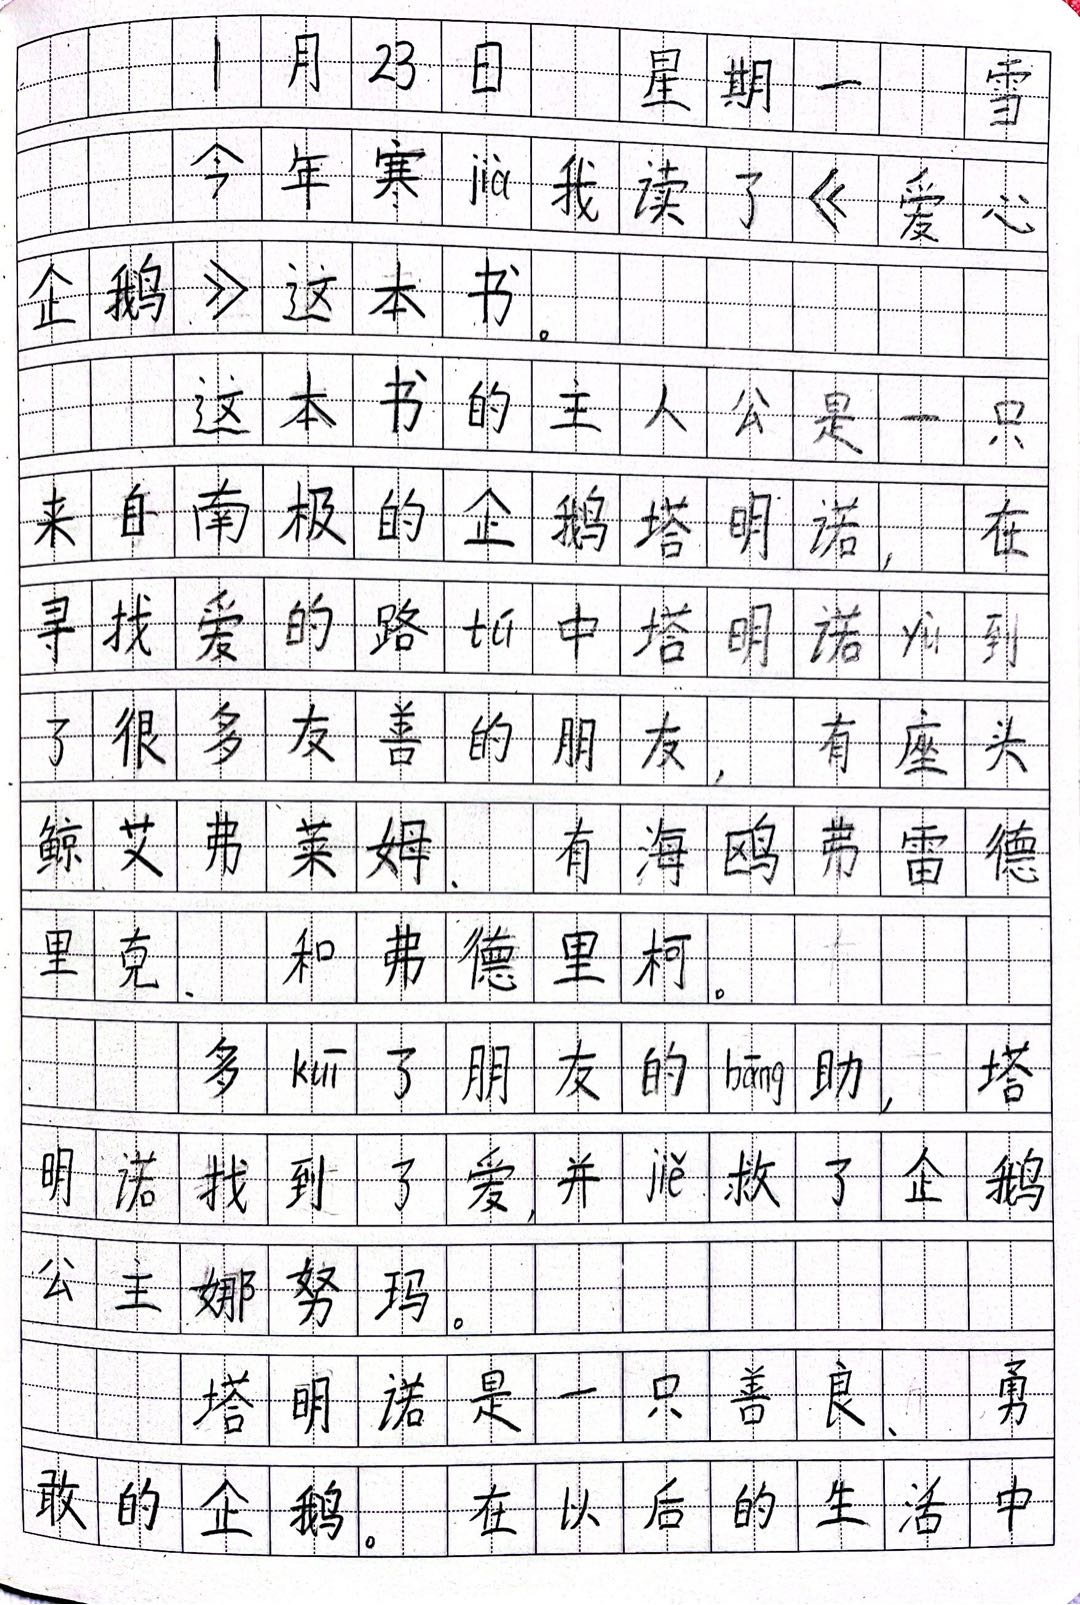 1月23日 星期一 雪
今年寒jià我读了《爱心
企鹅》这本书。
这本书的主人公是一只
来自南极的企鹅塔明诺,在
寻找爱的路tú中塔明诺yù到
了很多友善的朋友,有座头
鲸艾弗莱姆、有海鸥弗雷德
里克、和弗德里柯。
多kuī了朋友的bāng助,塔
明诺找到了爱,并jiě救了企鹅
公主娜努玛。
塔明诺是一只善良、勇
敢的企鹅。在以后的生活中